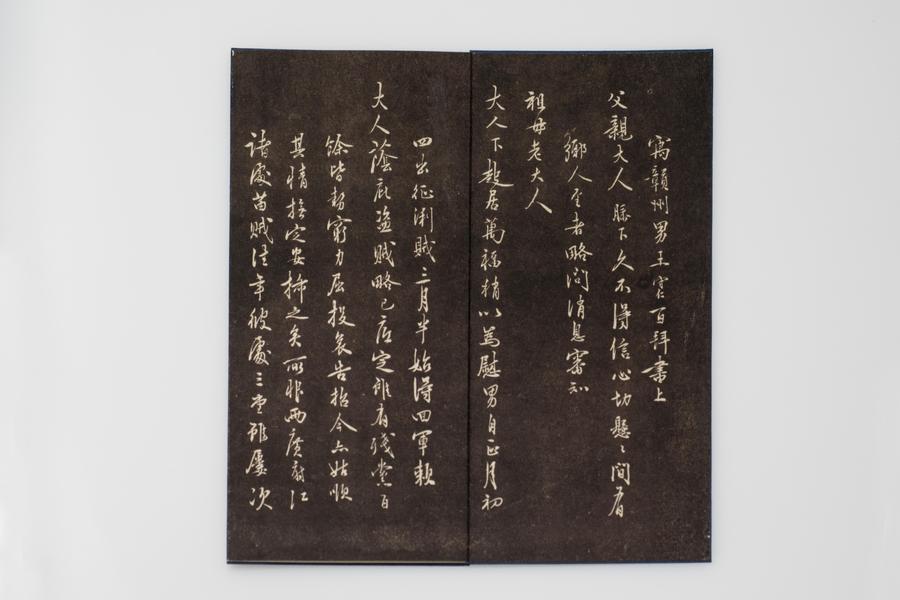 寓贛州男王百拜書上
父親大人膝下久不得信心切懸〻間有
鄉人至者略問消息審知
祖母老大人
大人下起居萬福稍以為慰男自正月初
四出征浰賊三月半始得回軍賴
大人蔭庇盜賊略已底定雖有殘黨百
餘皆勢窮力屈投哀告招今亦姑順
其情撫定安插之矣所恨兩廣府江
諸處苗賊往年彼處三堂雖屢次